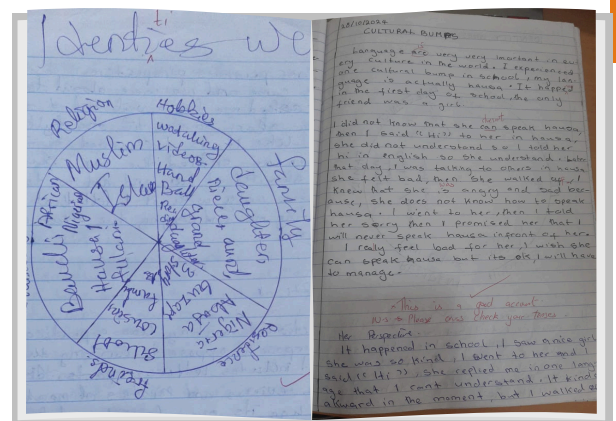 ti
Identies we
Religion
Muslim
Islam
Hobbies
watching
videos
Hand
Ball
family
daughter
niece aunt
Grand
Sister
Residence
Nigeria
Abuja
friends
School
cousins
family
African
Nigeria
Bauchi
Hausa/
Fulani
28/10/2024
CULTURAL BUMPS
Language are very very important in ev
ery culture in the world. I experienced
one cultural bump in school, my lan-
guage is actually hausa. It happed
in the first day at school, the only
friend was a girl.
I did not know that she can speak hausa,
then I said "Hi" to her in hausa,
she did not understand so I told her
hi in english so she understand. Later
that day, I was talking to others in hausa
she felt bad, then she walked up, I
was
knew that she is angry and sad bec-
ause, she does not know how to speak
hausa. I went to her, then I told
her sorry then I promised her that I
will never speak hausa infront of her.
I really feel bad for her, I wish she
can speak hausa but its ok, I will have
to manage.
This is a good account
Please also check your tenses.
Her Perspective.
It happened in school, I saw a nice girl
she was so kind, I went to her and I
said "Hi", she replied me in one lang-
uage that I cant understand, It kinda
akward in the moment, but I walked